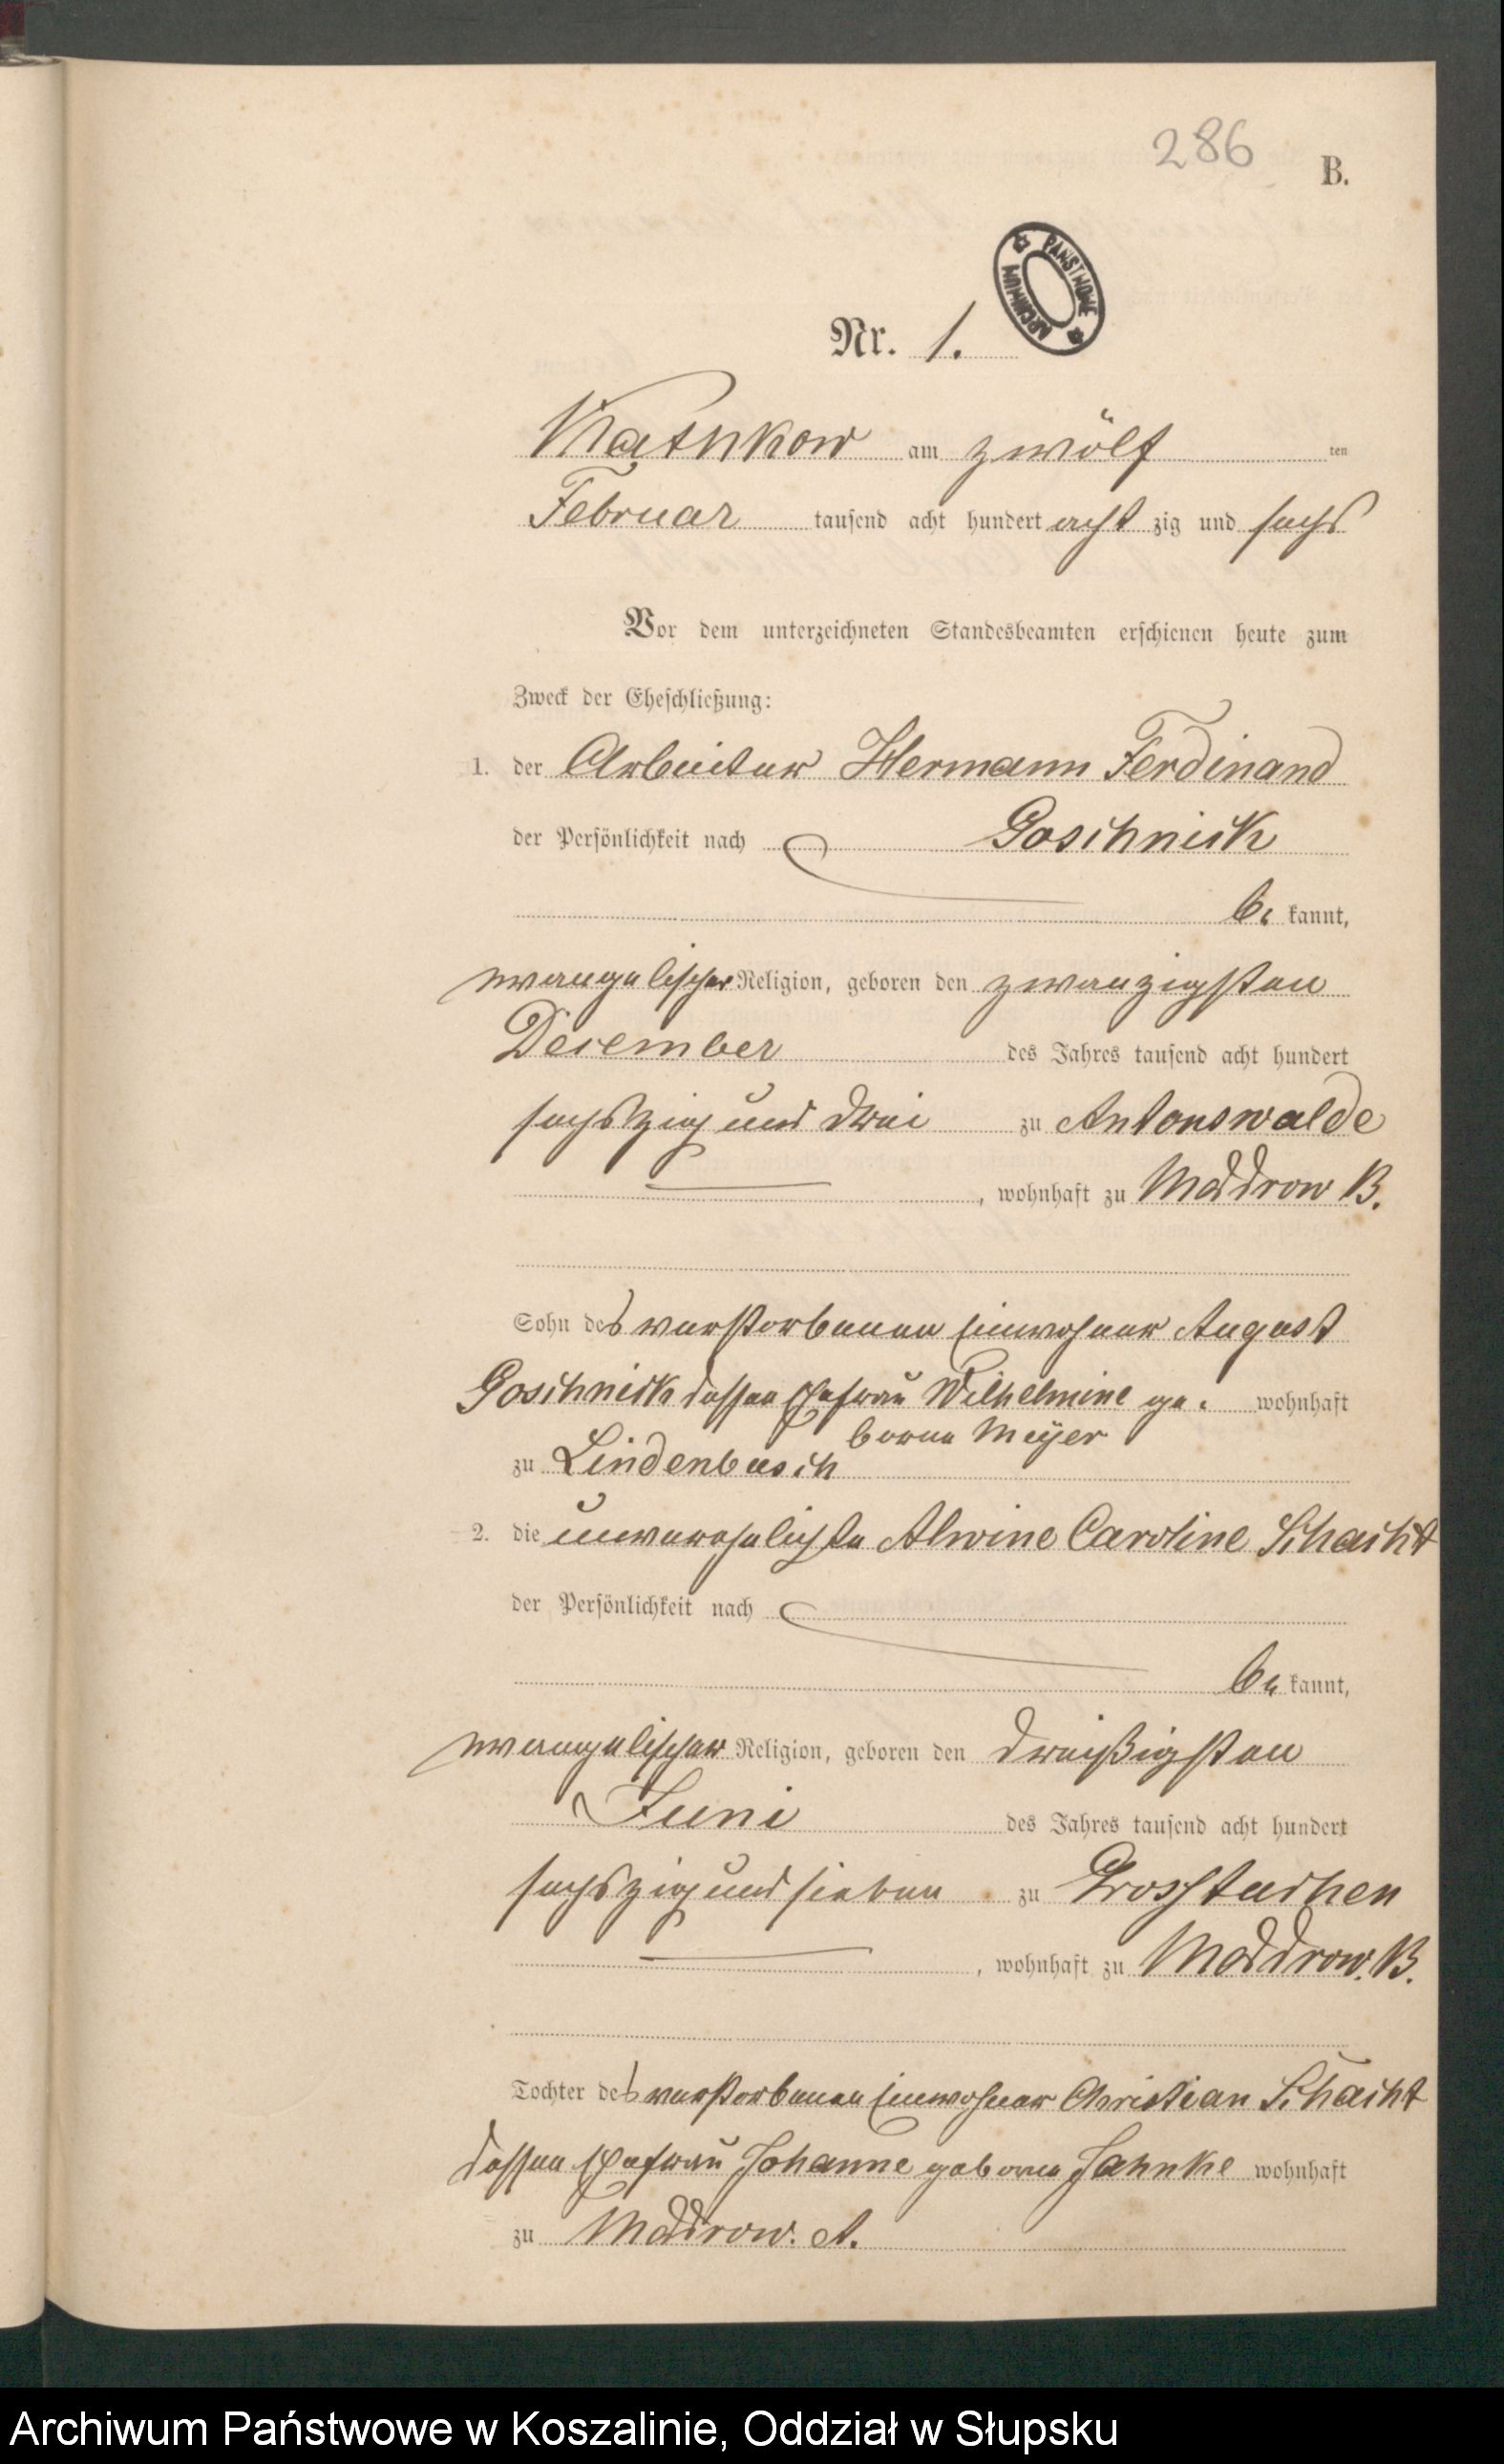 286
B.
ARCHIWUM PAŃSTWOWE
Nr. 1.
Kathkow am zwölf ten
Februar tausend acht hundert acht zig und sechs
Vor dem unterzeichneten Standesbeamten erschienen heute zum
Zweck der Eheschließung:
1. der Arbeiter Hermann Ferdinand
der Persönlichkeit nach Goschnick
be kannt,
evangelischer Religion, geboren den zwanzigsten
December des Jahres tausend acht hundert
sechszig und drei zu Antonswalde
, wohnhaft zu Moddrow B.
Sohn des verstorbenen Einwohner August
Goschnick dessen Ehefrau Wilhelmine ge- wohnhaft
borne Meyer
zu Lindenbusch
2. die unverehelichte Alwine Caroline Schacht
der Persönlichkeit nach
be kannt,
evangelischer Religion, geboren den dreißigsten
Juni des Jahres tausend acht hundert
sechszig und sieben zu Grosstuchen
, wohnhaft zu Moddrow. B.
Tochter des verstorbenen Einwohner Christian Schacht
dessen Ehefrau Johanne geborne Jahnke wohnhaft
zu Moddrow. A.
Archiwum Państwowe w Koszalinie, Oddział w Słupsku